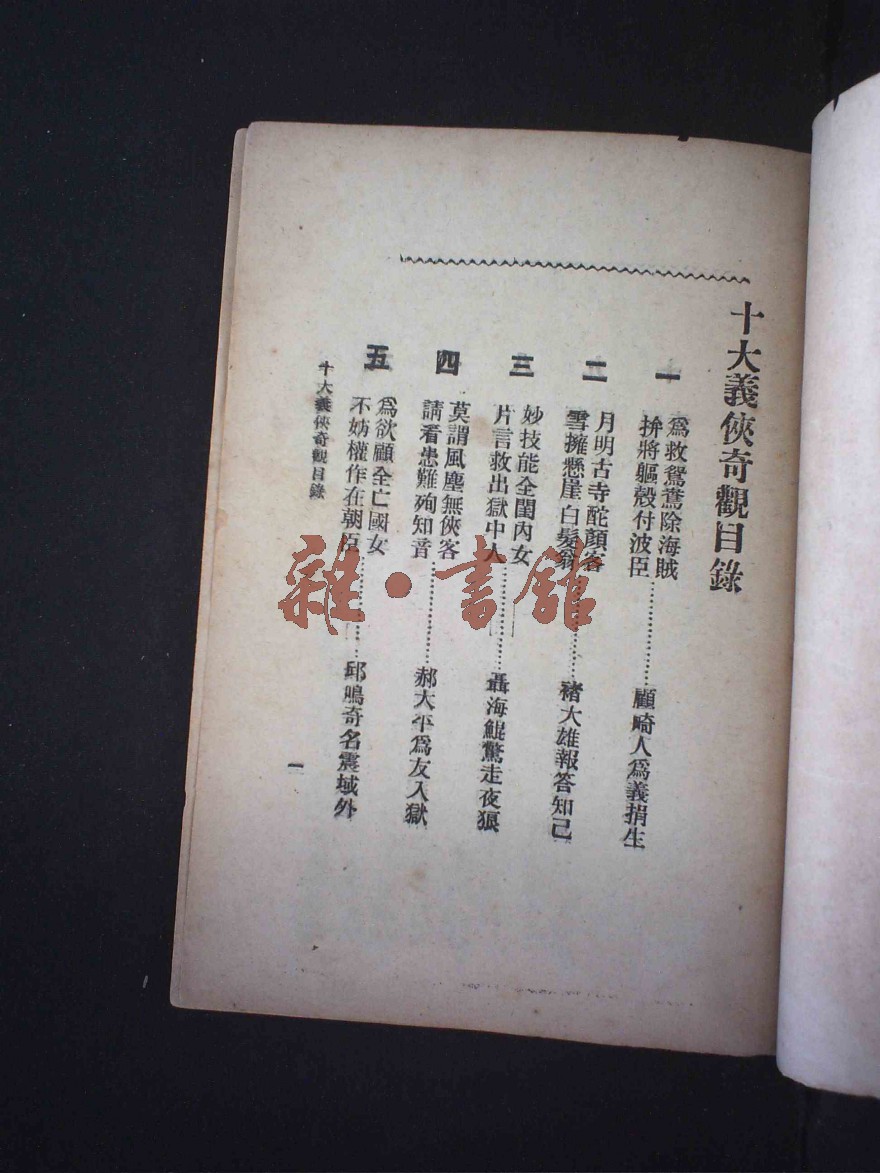 十大義俠奇觀目錄
一
為救鴛鴦除海賊
拚將軀殼付波臣…………顧畸人爲義捐生
二
月明古寺酡顏客
雪擁懸崖白髮翁…………褚大雄報答知己
三
妙技能全閨內女
片言救出獄中人…………聶海鯤驚走夜狼
四
莫謂風塵無俠客
請看患難殉知音…………郝大平爲友入獄
五
爲欲顧全亡國女
不妨權作在朝臣…………邱鳴奇名震域外
十大義俠奇觀目錄
一
雜·書館